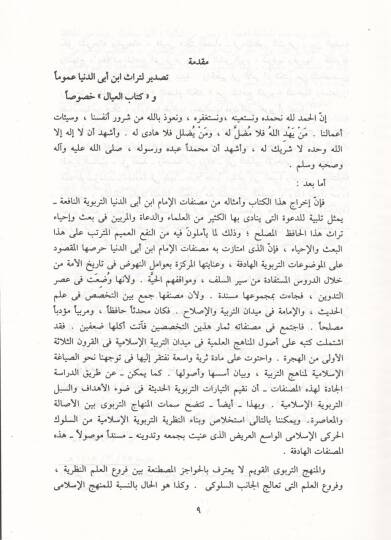 مقدمة
تصدير لتراث ابن أبى الدنيا عموماً
و « كتاب العيال » خصوصاً
إنّ الحمد لله نحمده ونستعينه ،ونستغفره ، ونعوذ بالله من شرور أنفسنا ، وسيئات
أعمالنا . مَنْ يَهْد اللهُ فلا مُضلّ له ، ومَنْ يُضلل فلا هادى له . وأشهد أن لا إله إلا
الله وحده لا شريك له ، وأشهد أن محمداً عبده ورسوله ، صلى الله عليه وآله
وصحبه وسلم .
أما بعد :
فإنّ إخراج هذا الكتاب وأمثاله من مصنفات الإمام ابن أبى الدنيا التربوية النافعة ـ
يمثل تلبية للدعوة التى ينادى بها الكثير من العلماء والدعاة والمربين فى بعث وإحياء
تراث هذا الحافظ المصلح ؛ وذلك لما يأملونْ فيه من النفع العميم المترتب على هذا
البعث والإحياء ، فإنّ الذى امتازت به مصنفات الإمام ابن أبى الدنيا حرصها المقصود
على الموضوعات التربوية الهادفة ، وعنايتها المركزة بعوامل النهوض فى تاريخ الأمة من
خلال الدروس المستفادة من سير السلف ، ومواقفهم الحيّة . ولأنها وُضِعت فى عصر
التدوين ، فجاءت بمجموعها مسندة . ولأن مصنفها جمع بين التخصّص فى علم
الحديث ، والإمامة فى ميدان التربية والإصلاح . فكان محدثاً حافظاً ، ومربياً مؤدباً
مصلحاً . فاجتمع فى مصنفاته ثمار هذين التخصصين فآتت أكلها ضعفين . فقد
اشتملت كتبه على أصول المناهج العلمية فى ميدان التربية الإسلامية فى القرون الثلاثة
الأولى من الهجرة . واحتوت على مادة ثرية واسعة نفتقر إليها فى توجهنا نحو الصياغة
الإسلامية لمناهج التربية ، وبيان أسسها وأصولها . كما يمكن ـ عن طريق الدراسة
الجادة لهذه المصنفات ـ أن نقيم التيارات التربوية الحديثة فى ضوء الأهداف والسبل
التربوية الإسلامية . وبهذا ـ أيضاً ـ تتضح سمات المنهاج التربوى بين الأصالة
والمعاصرة. ويمكننا بالتالى استخلاص وبناء النظرية التربوية الإسلامية من السلوك
الحركى الإسلامى الواسع العريض الذى عنيت بجمعه وتدوينه ـ مسنداً موصولاً ـ هذه
المصنفات الهادفة .
والمنهج التربوى القويم لا يعترف بالحواجز المصطنعة بين فروع العلم النظرية ،
وفروع العلم التى تعالج الجانب السلوكى . وكذا هو الحال بالنسبة للمنهج الإسلامى
٩